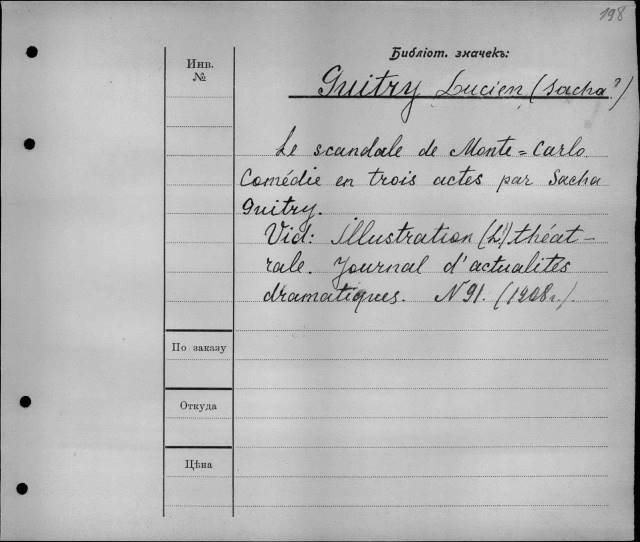 198
Библіот. значекъ:
Инв.
№
Guitry Lucien (Sacha?)
Le scandale de Monte=Carlo.
Comédie en trois actes par Sacha
Guitry.
Vid: Illustration (L') théat-
rale. Journal d'actualités
dramatiques. N 91. (1908 г.).
По заказу
Откуда
Цѣна